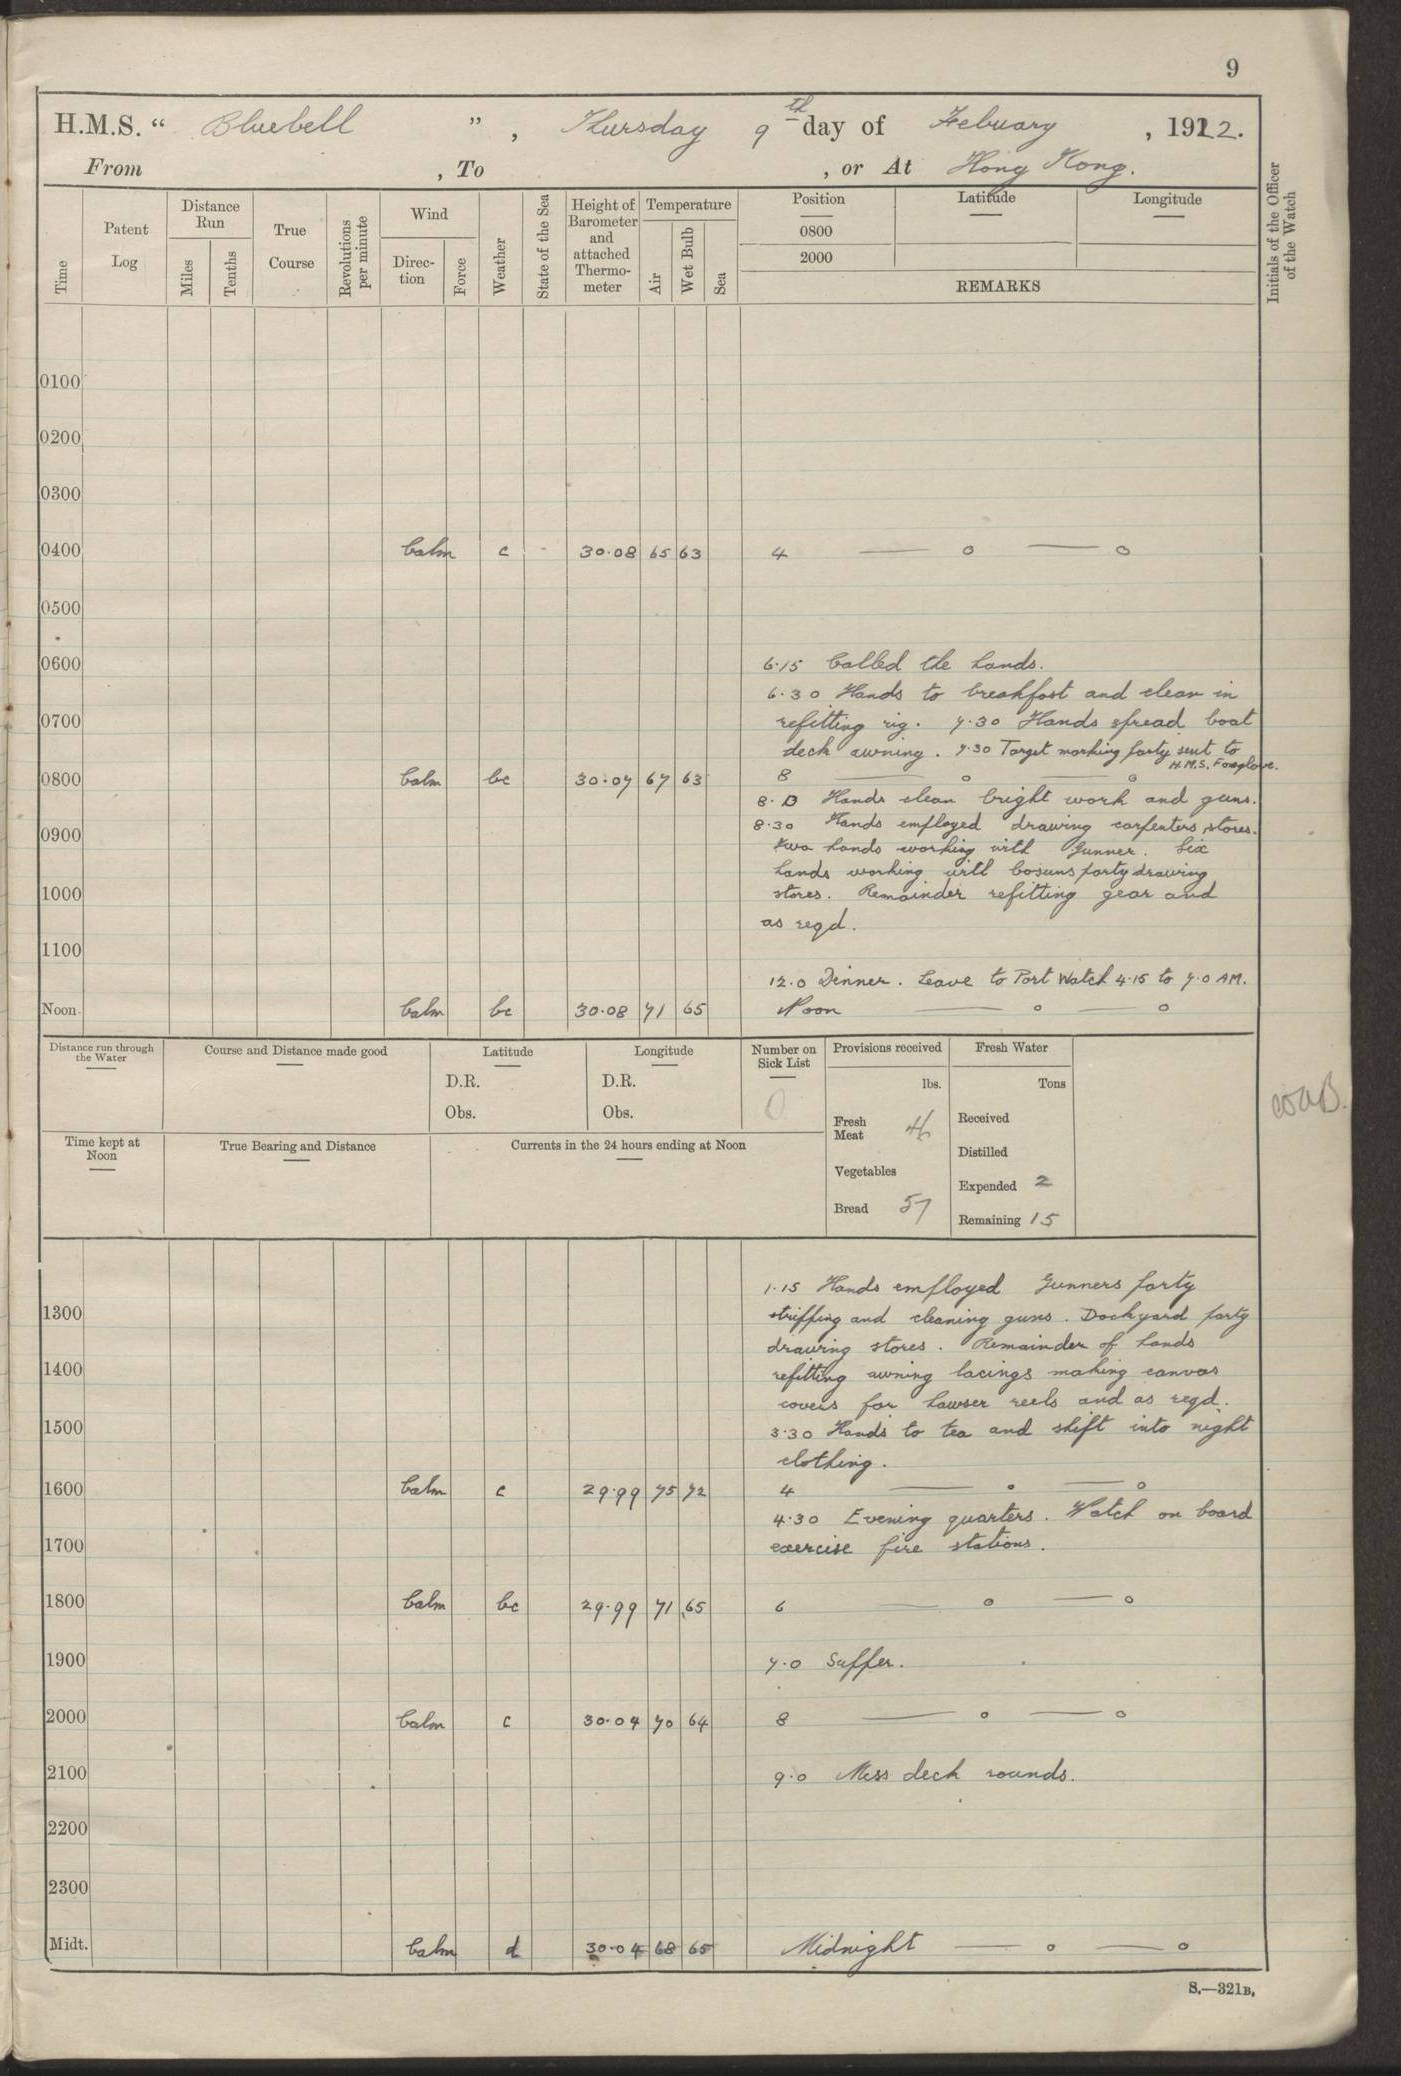 9
H.M.S. “ Bluebell ” , Thursday 9th day of Febuary , 1922.
From , To , or At Hong Kong.
Time
Patent Log
Distance Run
Miles
Tenths
True Course
Revolutions per minute
Wind
Direc- tion
Force
Weather
State of the Sea
Height of Barometer and attached Thermo- meter
Temperature
Air
Wet Bulb
Sea
Position Latitude Longitude
0800
2000
REMARKS
Initials of the Officer of the Watch
0100
0200
0300
0400 Calm c - 30.08 65 63 4 — o — o
0500
0600 6.15 Called the hands.
6.30 Hands to breakfast and clean in
0700 refitting rig. 7.30 Hands spread boat
deck awning. 7.30 Target working party sent to
H.M.S. Foxglove.
0800 Calm bc 30.07 67 63 8 — o — o
8.0 Hands clean bright work and guns.
8.30 Hands employed drawing carpenters stores.
0900 two hands working with Gunner. Six
hands working with bosuns party drawing
1000 stores. Remainder refitting gear and
as reqd.
1100
12.0 Dinner. Leave to Port Watch 4.15 to 7.0 AM.
Noon Calm bc 30.08 71 65 Noon — o — o
Distance run through the Water
Course and Distance made good
Latitude
D.R.
Obs.
Longitude
D.R.
Obs.
Number on Sick List
0
Provisions received
lbs.
Fresh Meat 46
Vegetables
Bread 57
Fresh Water
Tons
Received
Distilled
Expended 2
Remaining 15
Time kept at Noon
True Bearing and Distance
Currents in the 24 hours ending at Noon
1.15 Hands employed Gunners party
1300 stripping and cleaning guns. Dockyard party
drawing stores. Remainder of hands
1400 refitting awning lacings making canvas
covers for hawser reels and as reqd.
1500 3.30 Hands to tea and shift into night
clothing.
1600 Calm c 29.99 75 72 4 — o — o
4.30 Evening quarters. Watch on board
1700 exercise fire stations.
1800 Calm bc 29.99 71 65 6 — o — o
1900 7.0 Supper.
2000 Calm c 30.04 70 64 8 — o — o
2100 9.0 Mess deck rounds.
2200
2300
Midt. Calm d 30.04 68 65 Midnight — o — o
S.—321B.